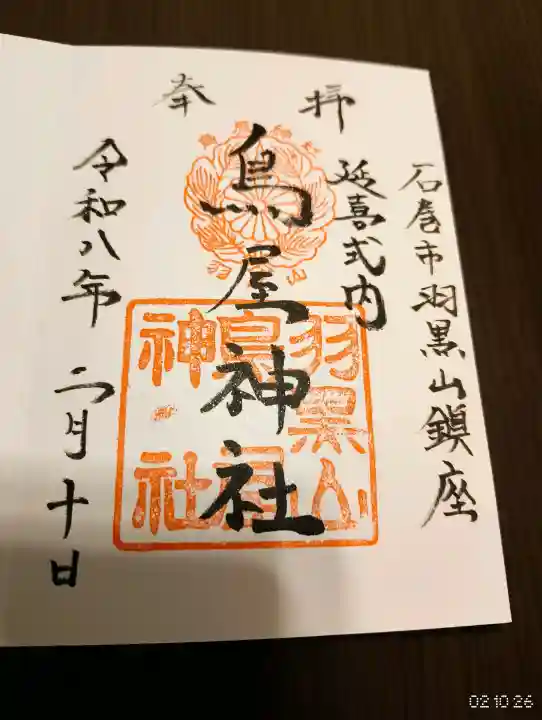 奉拝
石巻市羽黒山鎮座
延喜式内
鳥屋神社
令和八年 二月十日
羽黒山
鳥屋
神社
02 10 26